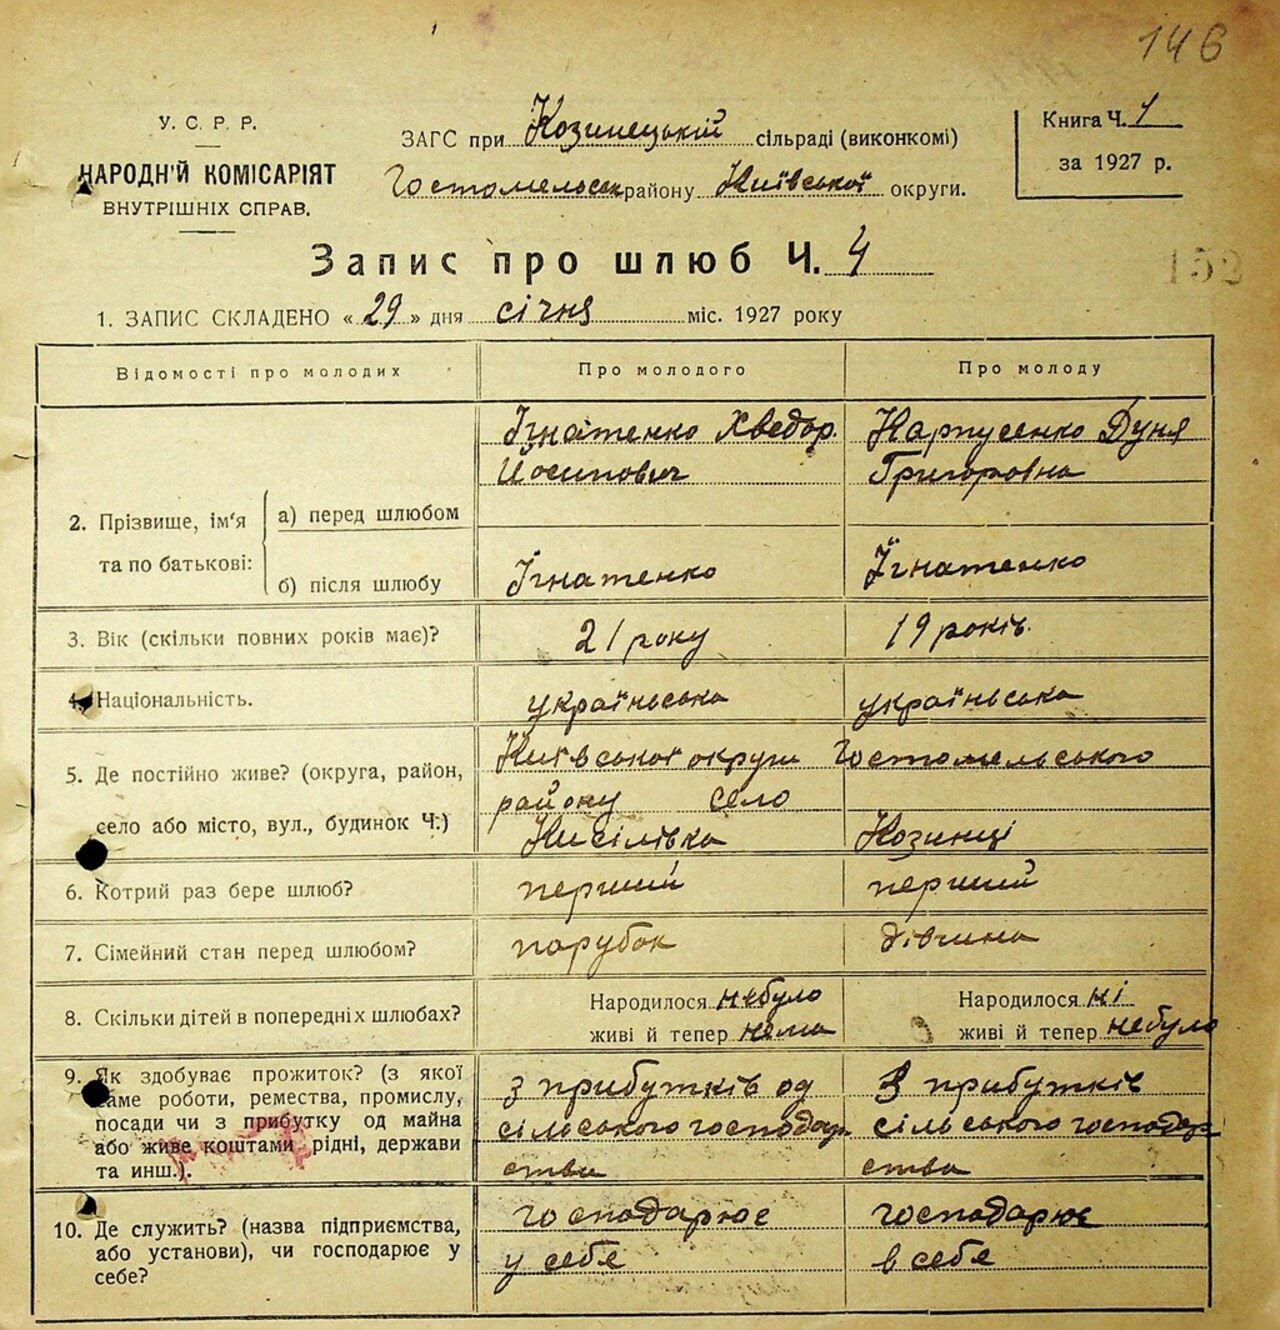 146
У. С. Р. Р.
НАРОДНʼЙ КОМІСАРІЯТ
ВНУТРІШНІХ СПРАВ.
ЗАГС при Козинецькій сільраді (виконкомі)
Гостомельськ району Київської округи.
Книга Ч. 1
за 1927 р.
Запис про шлюб Ч. 4
152
1. ЗАПИС СКЛАДЕНО « 29 » дня січня міс. 1927 року
Відомості про молодих Про молодого Про молоду
2. Прізвище, ім'я та по батькові:
а) перед шлюбом
Ігнатенко Хведор
Йосипович
Карпусенко Дуня
Григоровна
б) після шлюбу
Ігнатенко
Їгнатенко
3. Вік (скільки повних років має)? 21 року 19 років.
4. Національність. україньська україньська
5. Де постійно живе? (округа, район,
село або місто, вул., будинок Ч.)
Київської округи Гостомельського
району село
Кисілівка Козинці
6. Котрий раз бере шлюб? перший перший
7. Сімейний стан перед шлюбом? парубок дівчина
8. Скільки дітей в попередніх шлюбах?
Народилося небуло
живі й тепер нема
Народилося ні
живі й тепер небуло
9. Як здобуває прожиток? (з якої
саме роботи, ремества, промислу,
посади чи з прибутку од майна
або живе коштами рідні, держави
та инш.).
З прибутків од
сільського господар
ства
З прибутків
сільського господар
ства
10. Де служить? (назва підприємства,
або установи), чи господарює у
себе?
господарює
у себе
господарює
в себе